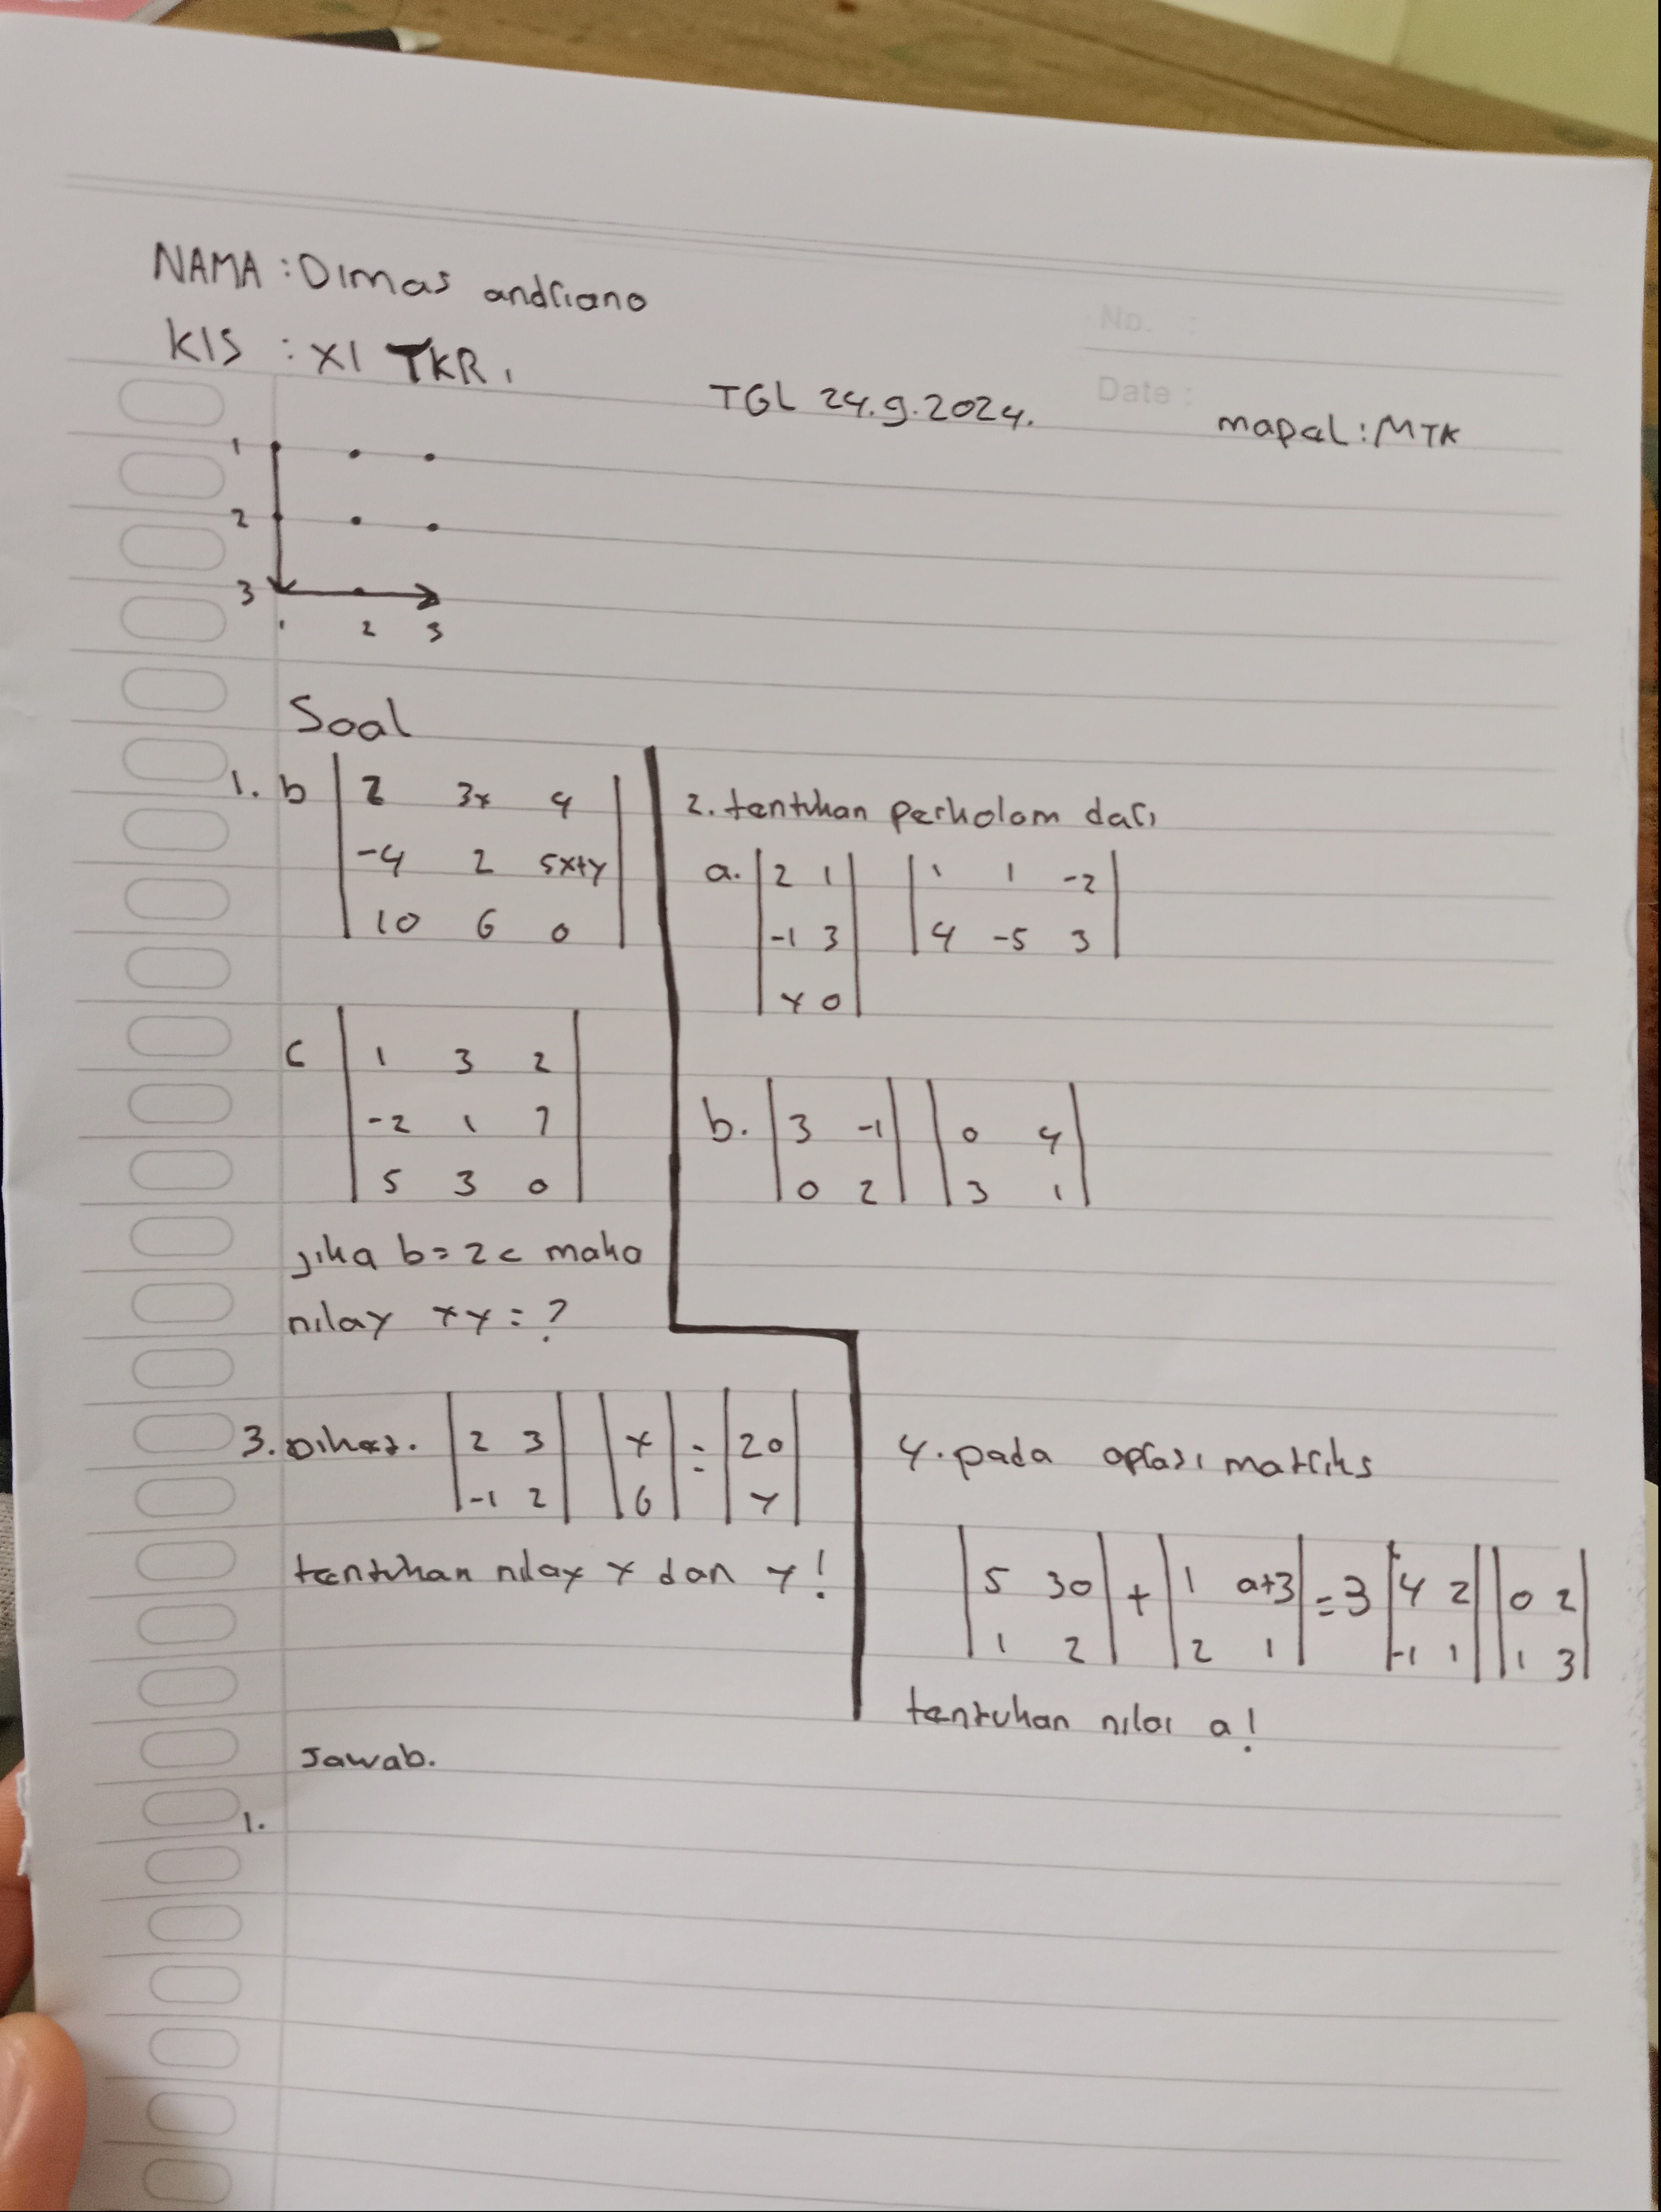 NAMA : Dimas andriano
KlS : XI TKR 1
No. :
Date :
TGL 24.9.2024.
mapel : MTK
1
2
3
1 2 3
Soal
1. b | 2 3x 4 |
| -4 2 5x+y |
| 10 6 0 |
c | 1 3 2 |
| -2 1 7 |
| 5 3 0 |
jika b = 2c maka
nilay x y = ?
2. tentukan perkolom dari
a. | 2 1 | | 1 1 -2 |
| -1 3 | | 4 -5 3 |
| y 0 |
b. | 3 -1 | | 0 4 |
| 0 2 | | 3 1 |
3. Diket. | 2 3 | | x | = | 20 |
| -1 2 | | 6 | | y |
tentukan nilay x dan y!
4. pada oprasi matriks
| 5 30 | + | 1 a+3 | = 3 | 4 2 | | 0 2 |
| 1 2 | | 2 1 | | -1 1 | | 1 3 |
tentukan nilai a!
Jawab.
1.